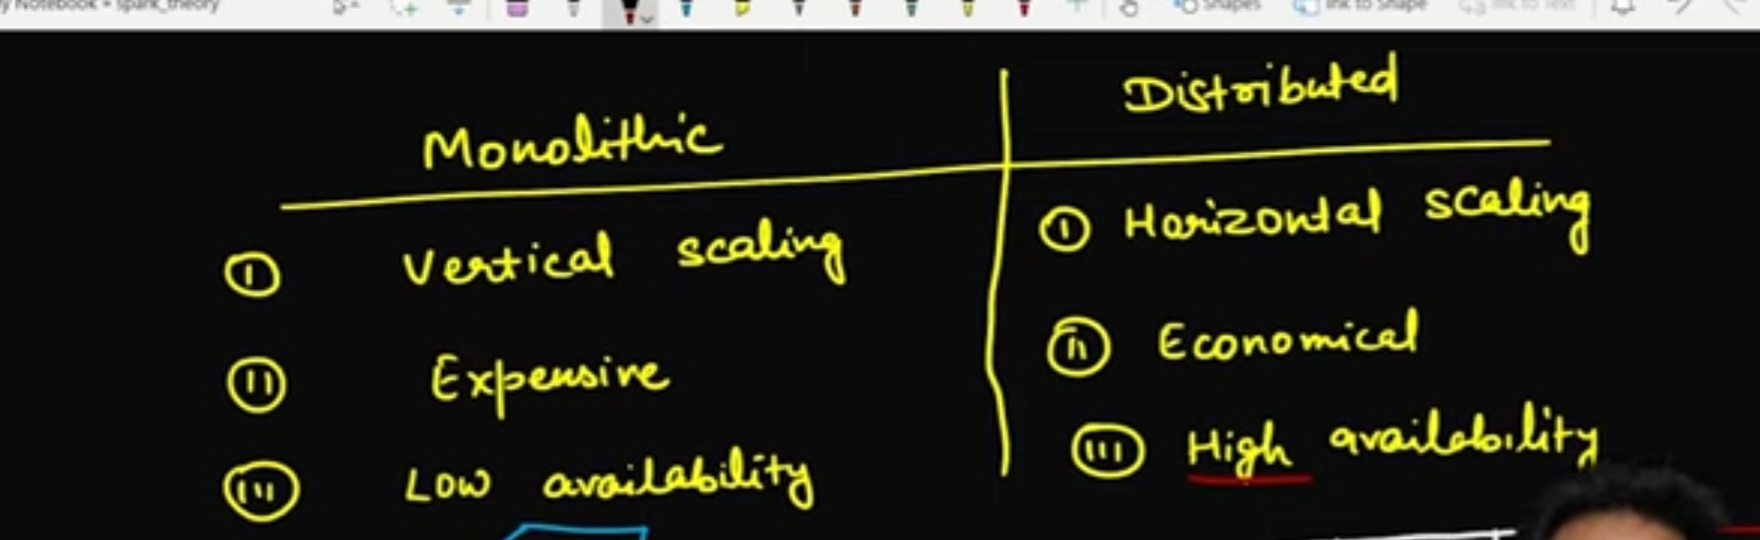 Notebook » spark_theory
Shapes
Ink to Shape
Ink to Text
Monolithic
Distributed
(i) Vertical scaling
(i) Horizontal scaling
(ii) Expensive
(ii) Economical
(iii) Low availability
(iii) High availability